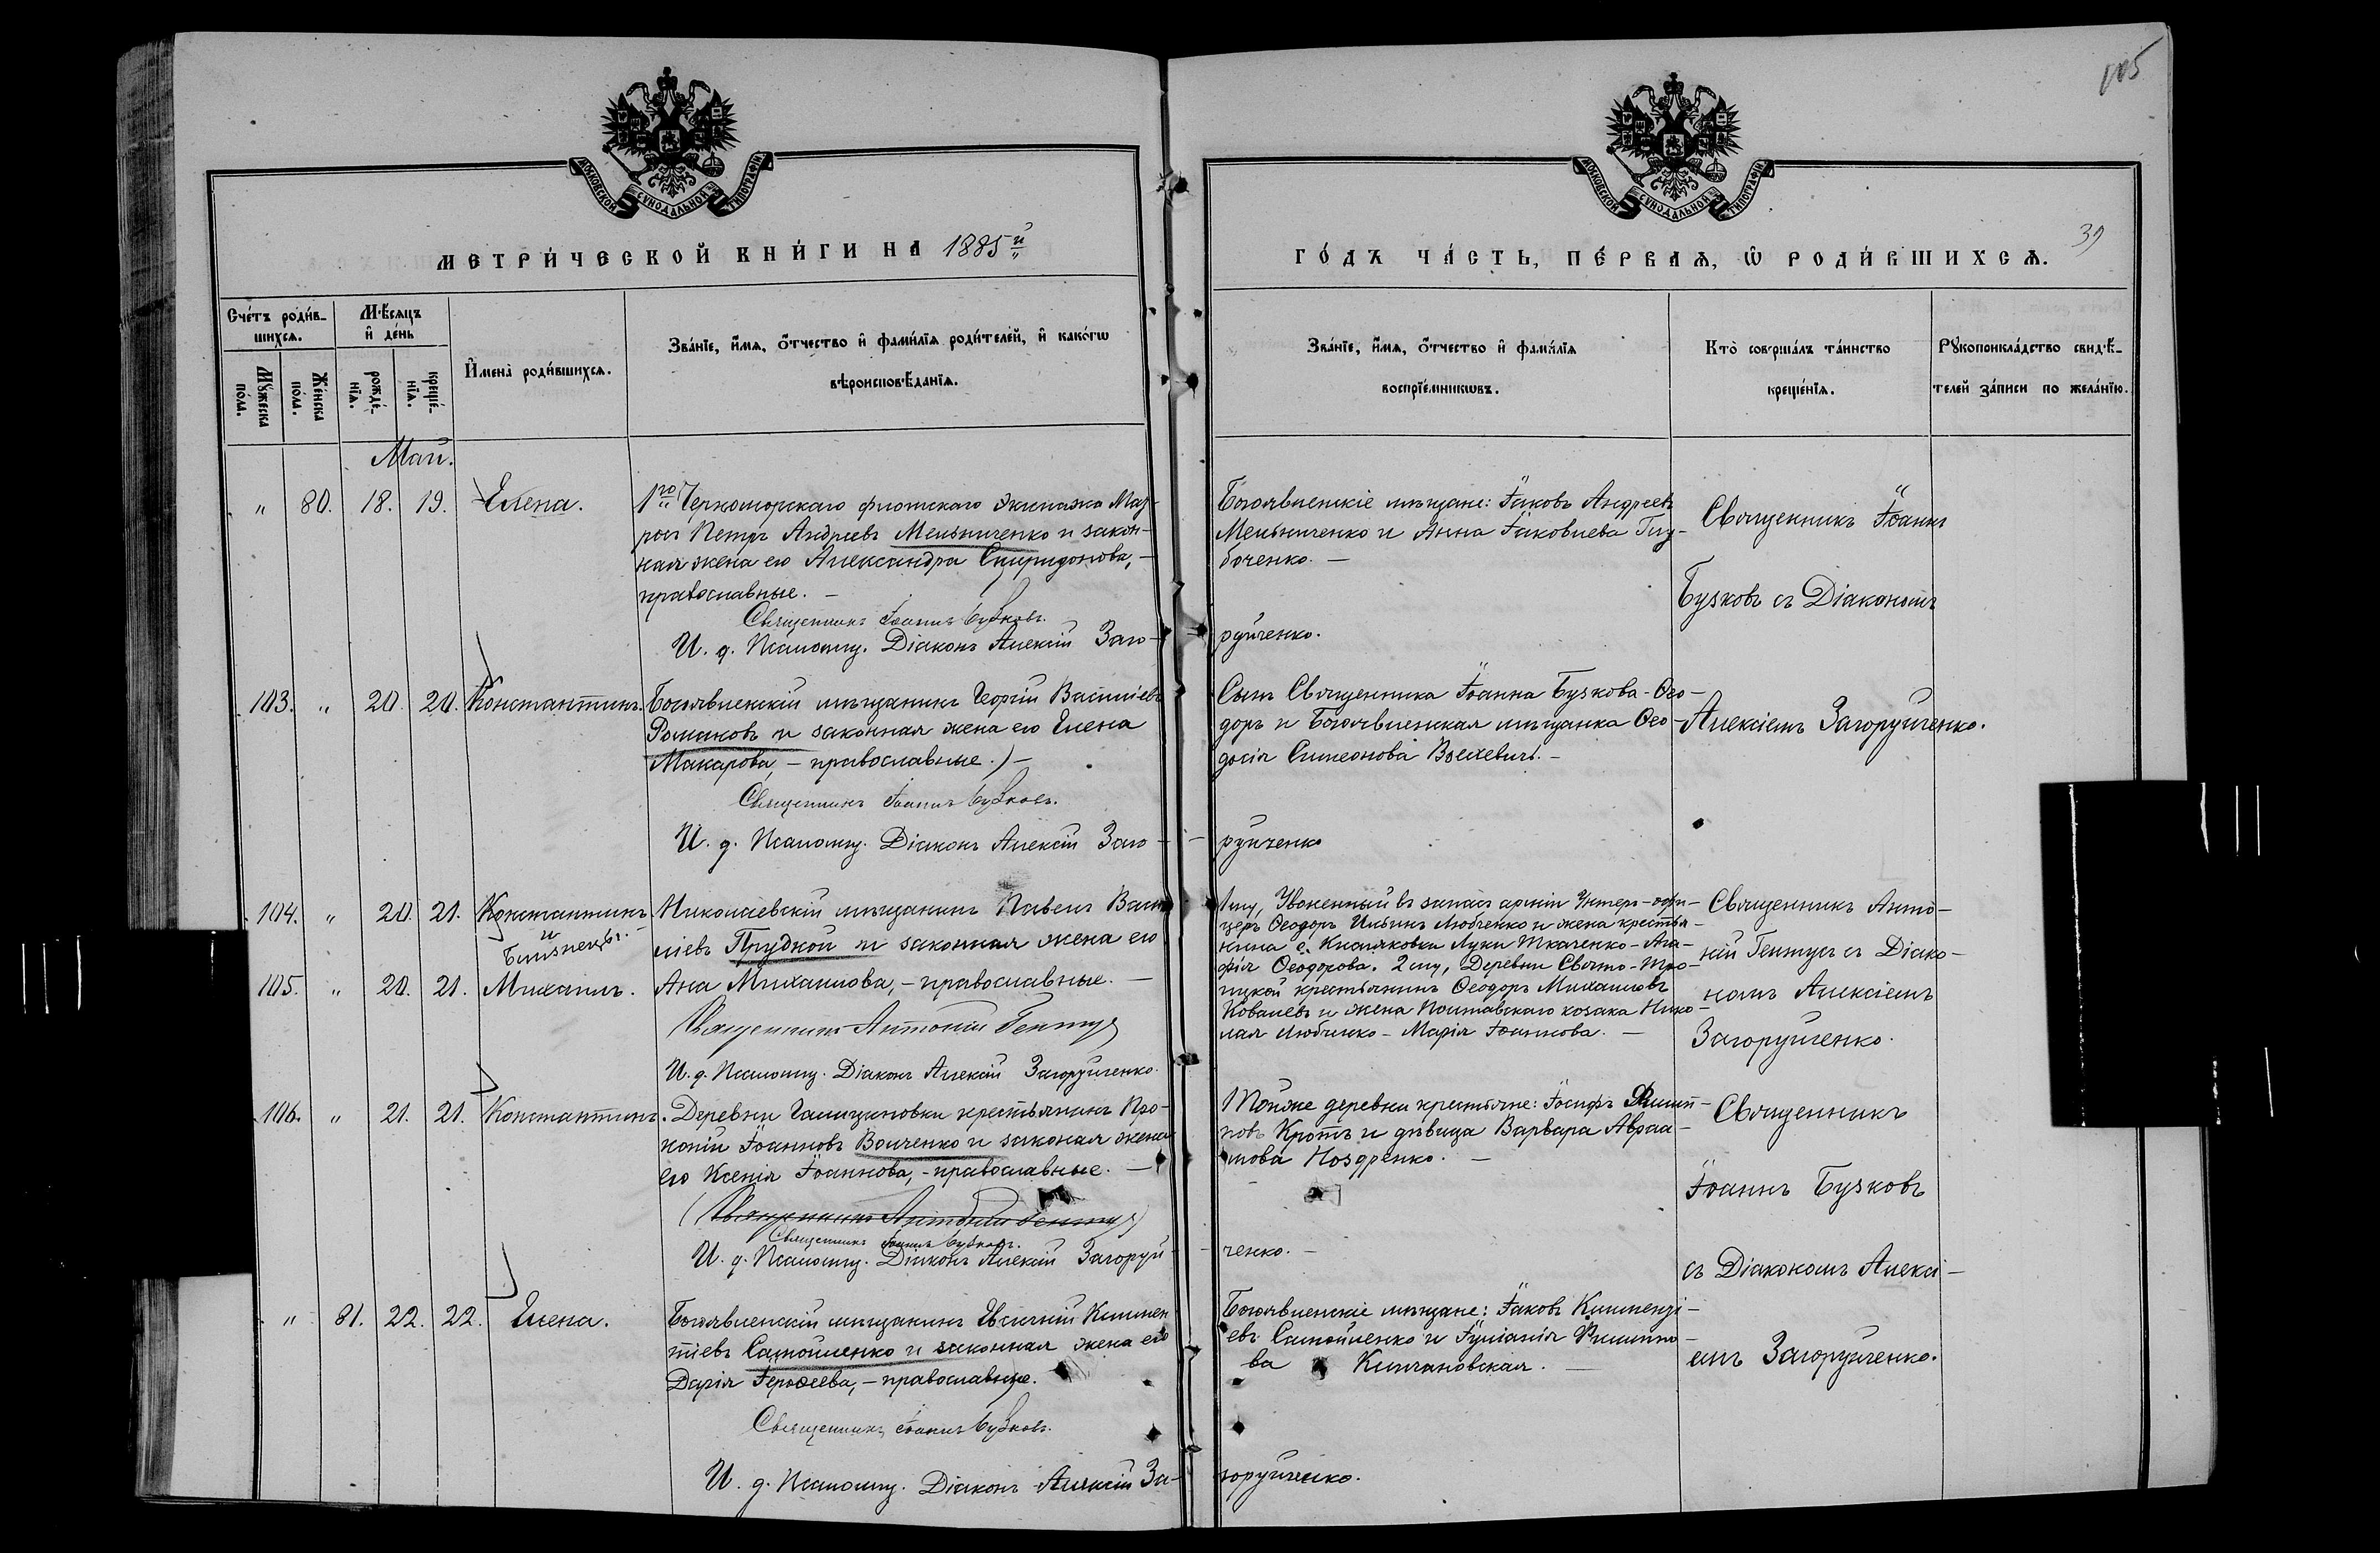 105
МОСКОВСКОЙ СУНОДАЛЬНОЙ ТИПОГРАФІИ
МОСКОВСКОЙ СУНОДАЛЬНОЙ ТИПОГРАФІИ
МЕТРИ́ЧЕСКОЙ КНИ́ГИ НА 1885й
ГО́ДЪ ЧА́СТЬ, ПЕ́РВАѦ, Ѡ РОДИ́ВШИХСѦ.
39
Сче́тъ роди́в-
шихсѧ.
Мꙋ́жеска
по́ла.
Же́нска
по́ла.
Мѣ́сѧцъ
и҆ де́нь
рожде́-
нїѧ.
креще́-
нїѧ.
И҆мена̀ роди́вшихсѧ.
Зва́нїе, и҆́мѧ, ѻ҆́тчество и҆ фами́лїѧ роди́телей, и҆ како́гѡ
вѣроисповѣ́данїѧ.
Зва́нїе, и҆́мѧ, ѻ҆́тчество и҆ фами́лїѧ
воспрїе́мникѡвъ.
Кто̀ соверша́лъ та́инство
креще́нїѧ.
Рꙋкоприкла́дство свидѣ́-
телей за́писи по жела́нїю.
Май.
" 80. 18. 19. Елена.
1го Черноморскаго флотскаго экипажа Мат-
росъ Петръ Андреевъ Мельниченко и закон-
ная жена его Александра Спиридонова,-
православные.-
Священникъ Іоаннъ Бузковъ.
И. д. Псаломщ. Діаконъ Алексій Заго-
руйченко.
Богоявленскіе мѣщане: Іаковъ Андреевъ
Мельниченко и Анна Іаковлева Глу-
боченко.-
Священникъ Іоаннъ
Бузковъ съ Діакономъ
103. " 20. 20. Константинъ.
Богоявленскій мѣщанинъ Георгій Василіевъ
Романовъ и законная жена его Елена
Макарова,- православные.)-
Священникъ Іоаннъ Бузковъ.
И. д. Псаломщ. Діаконъ Алексій Заго-
руйченко
Сынъ Священника Іоанна Бузкова-Ѳео-
доръ и Богоявленская мѣщанка Ѳео-
досія Симеонова
Алексіемъ Загоруйченко.
104. " 20. 21. Константинъ
и
Близнецы.-
105. " 20. 21. Михаилъ.
Николаевскій мѣщанинъ Павелъ Васи-
ліевъ Прудкой и законная жена его
Анна Михаилова,- православные.-
Священникъ Антоній Гептур
И. д. Псаломщ. Діаконъ Алексій Загоруйченко.
1му, Уволенный въ запасъ арміи Унтеръ-офи-
церъ Ѳеодоръ Ильинъ Любченко и жена крестья-
нина с. Кисляковки Луки Ткаченко- Ага-
фія Ѳеодорова. 2му, Деревни Свято-Тро-
ицкой крестьянинъ Ѳеодоръ Михаиловъ
Ковалевъ и жена Полтавскаго козака Нико-
лая Любченко- Марія Іоаннова.-
Священникъ Анто-
ній Гептуръ съ Діако-
номъ Алексіемъ
Загоруйченко.
106. " 21. 21. Константинъ.
Деревни Галициновки крестьянинъ Про-
копій Іоанновъ Волченко и законая жена
его Ксенія Іоаннова,- православные.-
Священникъ Антоній Гептур
Священникъ Іоаннъ Бузковъ.
И. д. Псаломщ. Діаконъ Алексій Загоруй-
ченко.-
Тойже деревни крестьяне: Іосифъ Филип-
повъ Кротъ и дѣвица Варвара Авраа-
мова Ноздренко.-
Священникъ
Іоаннъ Бузковъ
съ Діакономъ Алексі-
" 81. 22. 22. Елена.
Богоявленскій мѣщанинъ Евсигній Климен-
тіевъ Самойленко и законная жена его
Дарія Іероѳеева,- православные.
Священникъ Іоаннъ Бузковъ.
И. д. Псаломщ. Діаконъ Алексій За-
горуйченко.
Богоявленскіе мѣщане: Іаковъ Климензі-
евъ Самойленко и Іуліанія Филиппо-
ва Килчановская.-
емъ Загоруйченко.